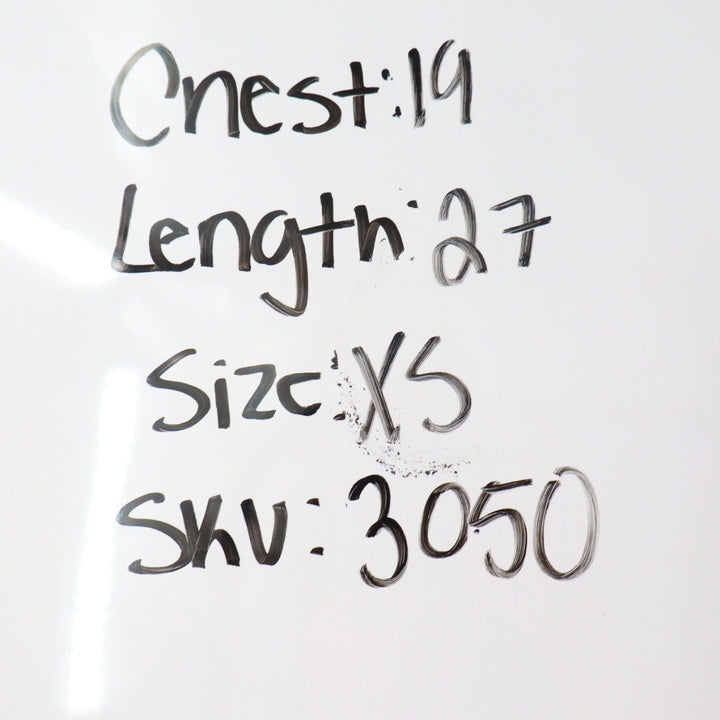 Chest: 19
Length: 27
Size: XS
SKU: 3050